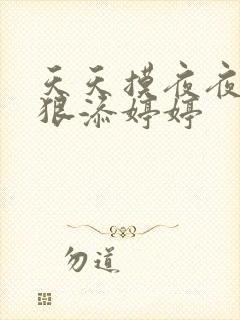 天天摸夜夜
狠添婷婷
勿道